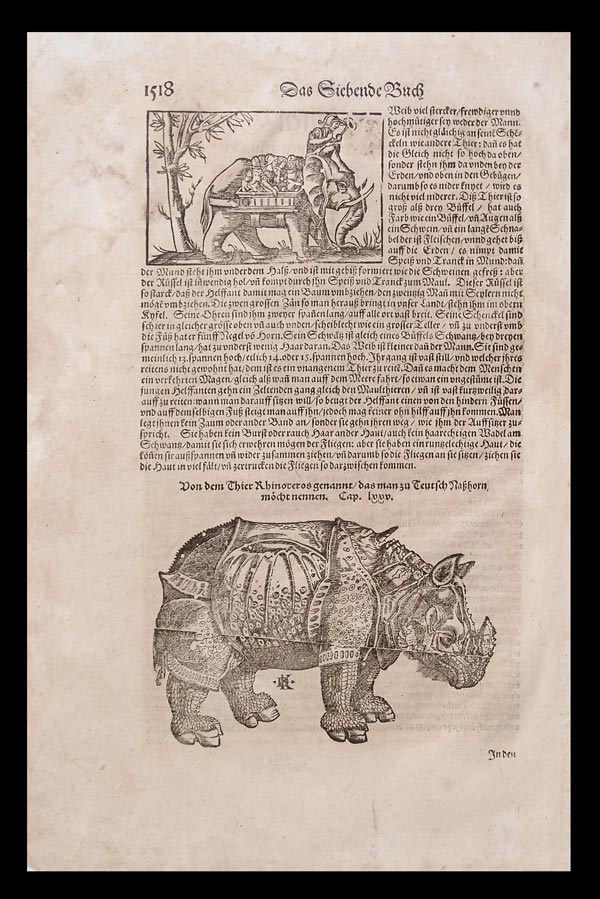 1518 Das Siebende Buch
Weib viel stercker/ frewdiger vnnd
hochmütiger sey weder der Mann.
Es ist nicht gläichig an seinē Schē-
ckeln wie andere Thier: dañ es hat
die Gleich nicht so hoch da oben/
sonder stehn jhm da vnden bey der
Erden/ vnd oben in den Gebügen/
darumb so es nider knyet / wird es
nicht viel niderer. Diß Thier ist so
groß alß drey Büffel / hat auch
Farb wie ein Büffel/ vñ Augen alß
ein Schwein/ vñ ein langē Schna-
bel der ist Fleischen/ vnnd gehet biß
auff die Erden / es nimpt damit
Speiß vnd Tranck in Mund: dañ
der Mund steht jhm vnder dem Halß/ vnd ist mit gebiß formiert wie die Schweinen gefreß : aber
der Rüssel ist iñwendig hol/ vñ kompt durch jhn Speiß vnd Tranck zum Maul. Dieser Rüssel ist
so starck/ daß der Helffant damit mag ein Baum vmbziehen/ den zwentzig Mañ mit Seylern nicht
möchtē vmbziehen. Die zween grossen Zän so man herauß bringt in vnser Landt/ stehn jhm im obern
Kyfel. Seine Ohren sind jhm zweyer spañen lang/ auff alle ort vast breit. Seine Schenckel sind
schier in gleicher grösse oben vñ auch vnden/ scheiblecht wie ein grosser Teller / vñ zu vnderst vmb
die Füß hat er fünff Negel vō Horn. Sein Schwätz ist gleich eines Büffels Schwantz/ bey dreyen
spannen lang/ hat zu vnderst wenig Haar daran. Das Weib ist kleiner dañ der Mann. Sie sind ge
meinlich 13. spannen hoch/ etlich 14. oder 15. spannen hoch. Jhr gang ist vast still/ vnd welcher jhres
reitens nicht gewohnt hat/ dem ist es ein vnangenem Thier zu reitē. Dañ es macht dem Menschen
ein verkehrten Magen/ gleich alß wañ man auff dem Meere fahrt/ so etwan ein vngestüme ist. Die
jungen Helffanten gehn ein Zeltenden gang gleich den Maulthieren/ vñ ist vast kurtzweilig dar-
auff zu reiten: wann man darauff sitzen will/ so beugt der Helffant einen von den hindern Füssen/
vnd auff demselbigen Fuß steigt man auff jhn/ jedoch mag keiner ohn hilff auff jhn kommen. Man
legt jhnen kein Zaum oder ander Band an/ sonder sie gehn jhren weg / wie jhm der Auffsitzer zu-
spricht. Sie haben kein Burst oder rauch Haar an der Haut/ auch kein haarechtigen Wadel am
Schwantz/ damit sie sich erwehren mögen der Fliegen: aber sie haben ein runtzelechtige Haut/ die
köñen sie außspannen vñ wider zusammen ziehen/ vñ darumb so die Fliegen an sie sitzen/ ziehen sie
die Haut in viel fält/ vñ zertrucken die Fliegen so darzwischen kommen.
Von dem Thier Rhinoceros genannt/ das man zu Teutsch Naßhorn
möcht nennen. Cap. lxxv.
HK
In den